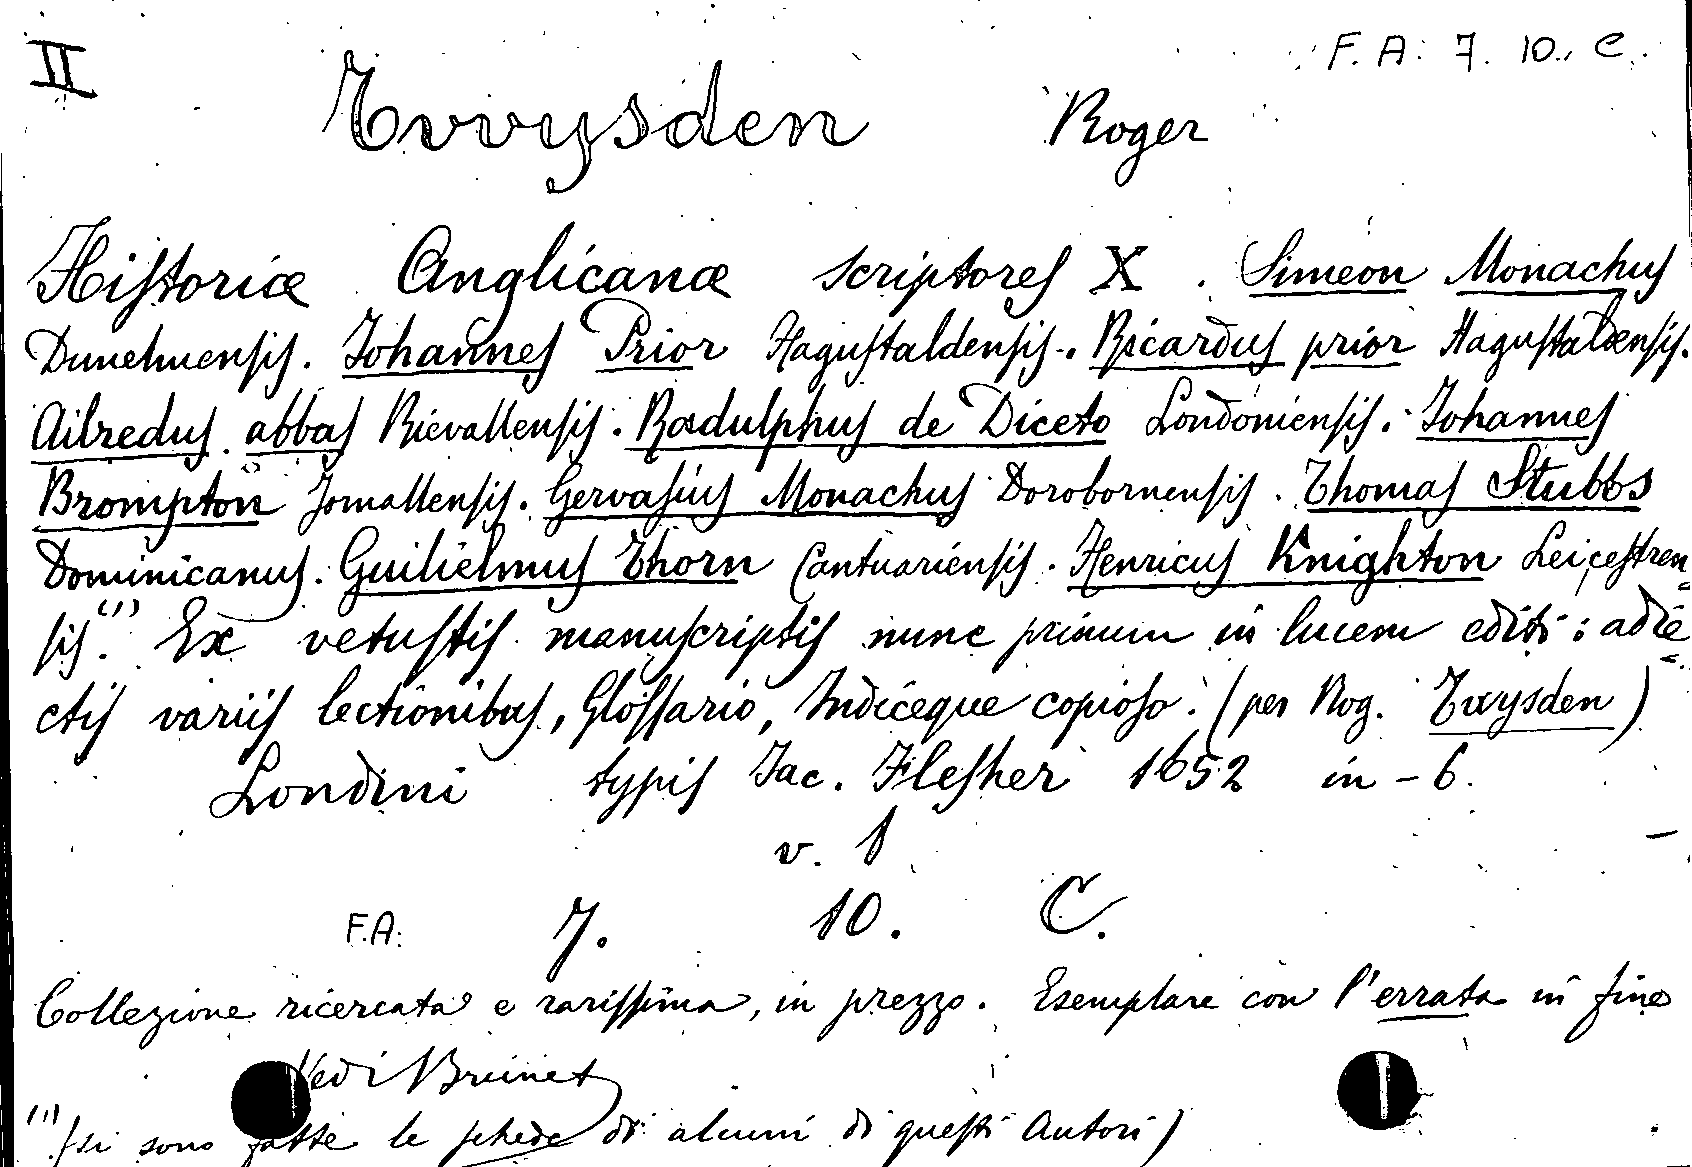 II F. A. 7. 10. C.
Tvvysden Roger
Historiæ Anglicanæ scriptores X. Simeon Monachus
Dunelmensis. Johannes Prior Hagustaldensis. Ricardus prior Hagustaldensis.
Ailredus abbas Rievallensis. Radulphus de Diceto Londoniensis. Johannes
Brompton Jornallensis. Gervasius Monachus Dorobornensis. Thomas Stubbs
Dominicanus. Guilielmus Thorn Cantuariensis. Henricus Knighton Leicestren=
sis.(1) Ex vetustis manuscriptis nunc primum in lucem editi: adie=
ctis variis lectionibus, Glossario, Indiceque copioso. (per Rog. Twysden)
Londini typis Jac. Flesher 1652 in-6.
v. 1
F.A: 7. 10. C.
Collezione ricercata e rarissima, in prezzo. Esemplare con l'errata in fine
Vedi Brunet
(1) (si sono fatte le schede di alcuni di questi Autori)